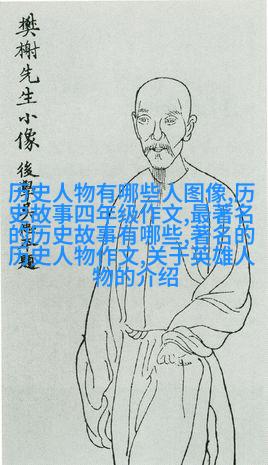 樊榭先生小像
後學題
历史人物有哪些人图像,历
史故事四年级作文,最著名
的历史故事有哪些,著名的
历史人物作文,关于英雄人
物的介绍